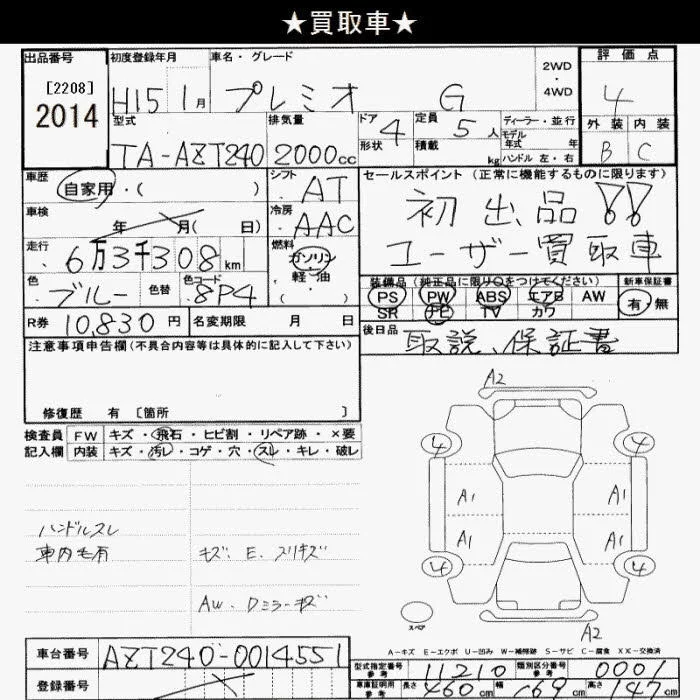 ★買取車★
出品番号 初度登録年月 車名・グレード 2WD・4WD 評価点
[2208] 2014 H15 1月 プレミオ G 4
型式 排気量 ドア形状 4 定員 5人 積載 kg ディーラー・並行 モデル年式 年 ハンドル 左・右 外装 内装
TA-AZT240 2000cc B C
車歴 自家用・( ) シフト AT セールスポイント (正常に機能するものに限ります)
車検 年 月( 日) 冷房 AAC 初出品!!
走行 6万3千308km 燃料 ガソリン・軽油 ( ) ユーザー買取車
色 ブルー 色替 色コード 8P4 装備品 (純正品に限り○をつけてください) 新車保証書
PS PW ABS エアB AW 有・無
SR TV カワ
R券 10,830円 名変期限 月 日 後日品 取説、保証書
注意事項申告欄(不具合内容等は具体的に記入して下さい)
修復歴 有 [箇所 ]
検査員記入欄 FW キズ・飛石・ヒビ割・リペア跡・×要
内装 キズ・汚レ・コゲ・穴・スレ・キレ・破レ
A2
4 4
A1 A1
A1 A1
4 4
スペア
A2
ハンドルスレ
車内毛有 キズ、E、スリキズ
AW、Dミラーキズ
A-キズ E-エクボ U-凹み W-補修跡 S-サビ C-腐食 XX-交換済
車台番号 AZT240-0014551 型式指定番号 参考 11210 類別区分番号 参考 0001
登録番号 車庫証明用 参考 長さ 460cm 幅 169cm 高さ 147cm